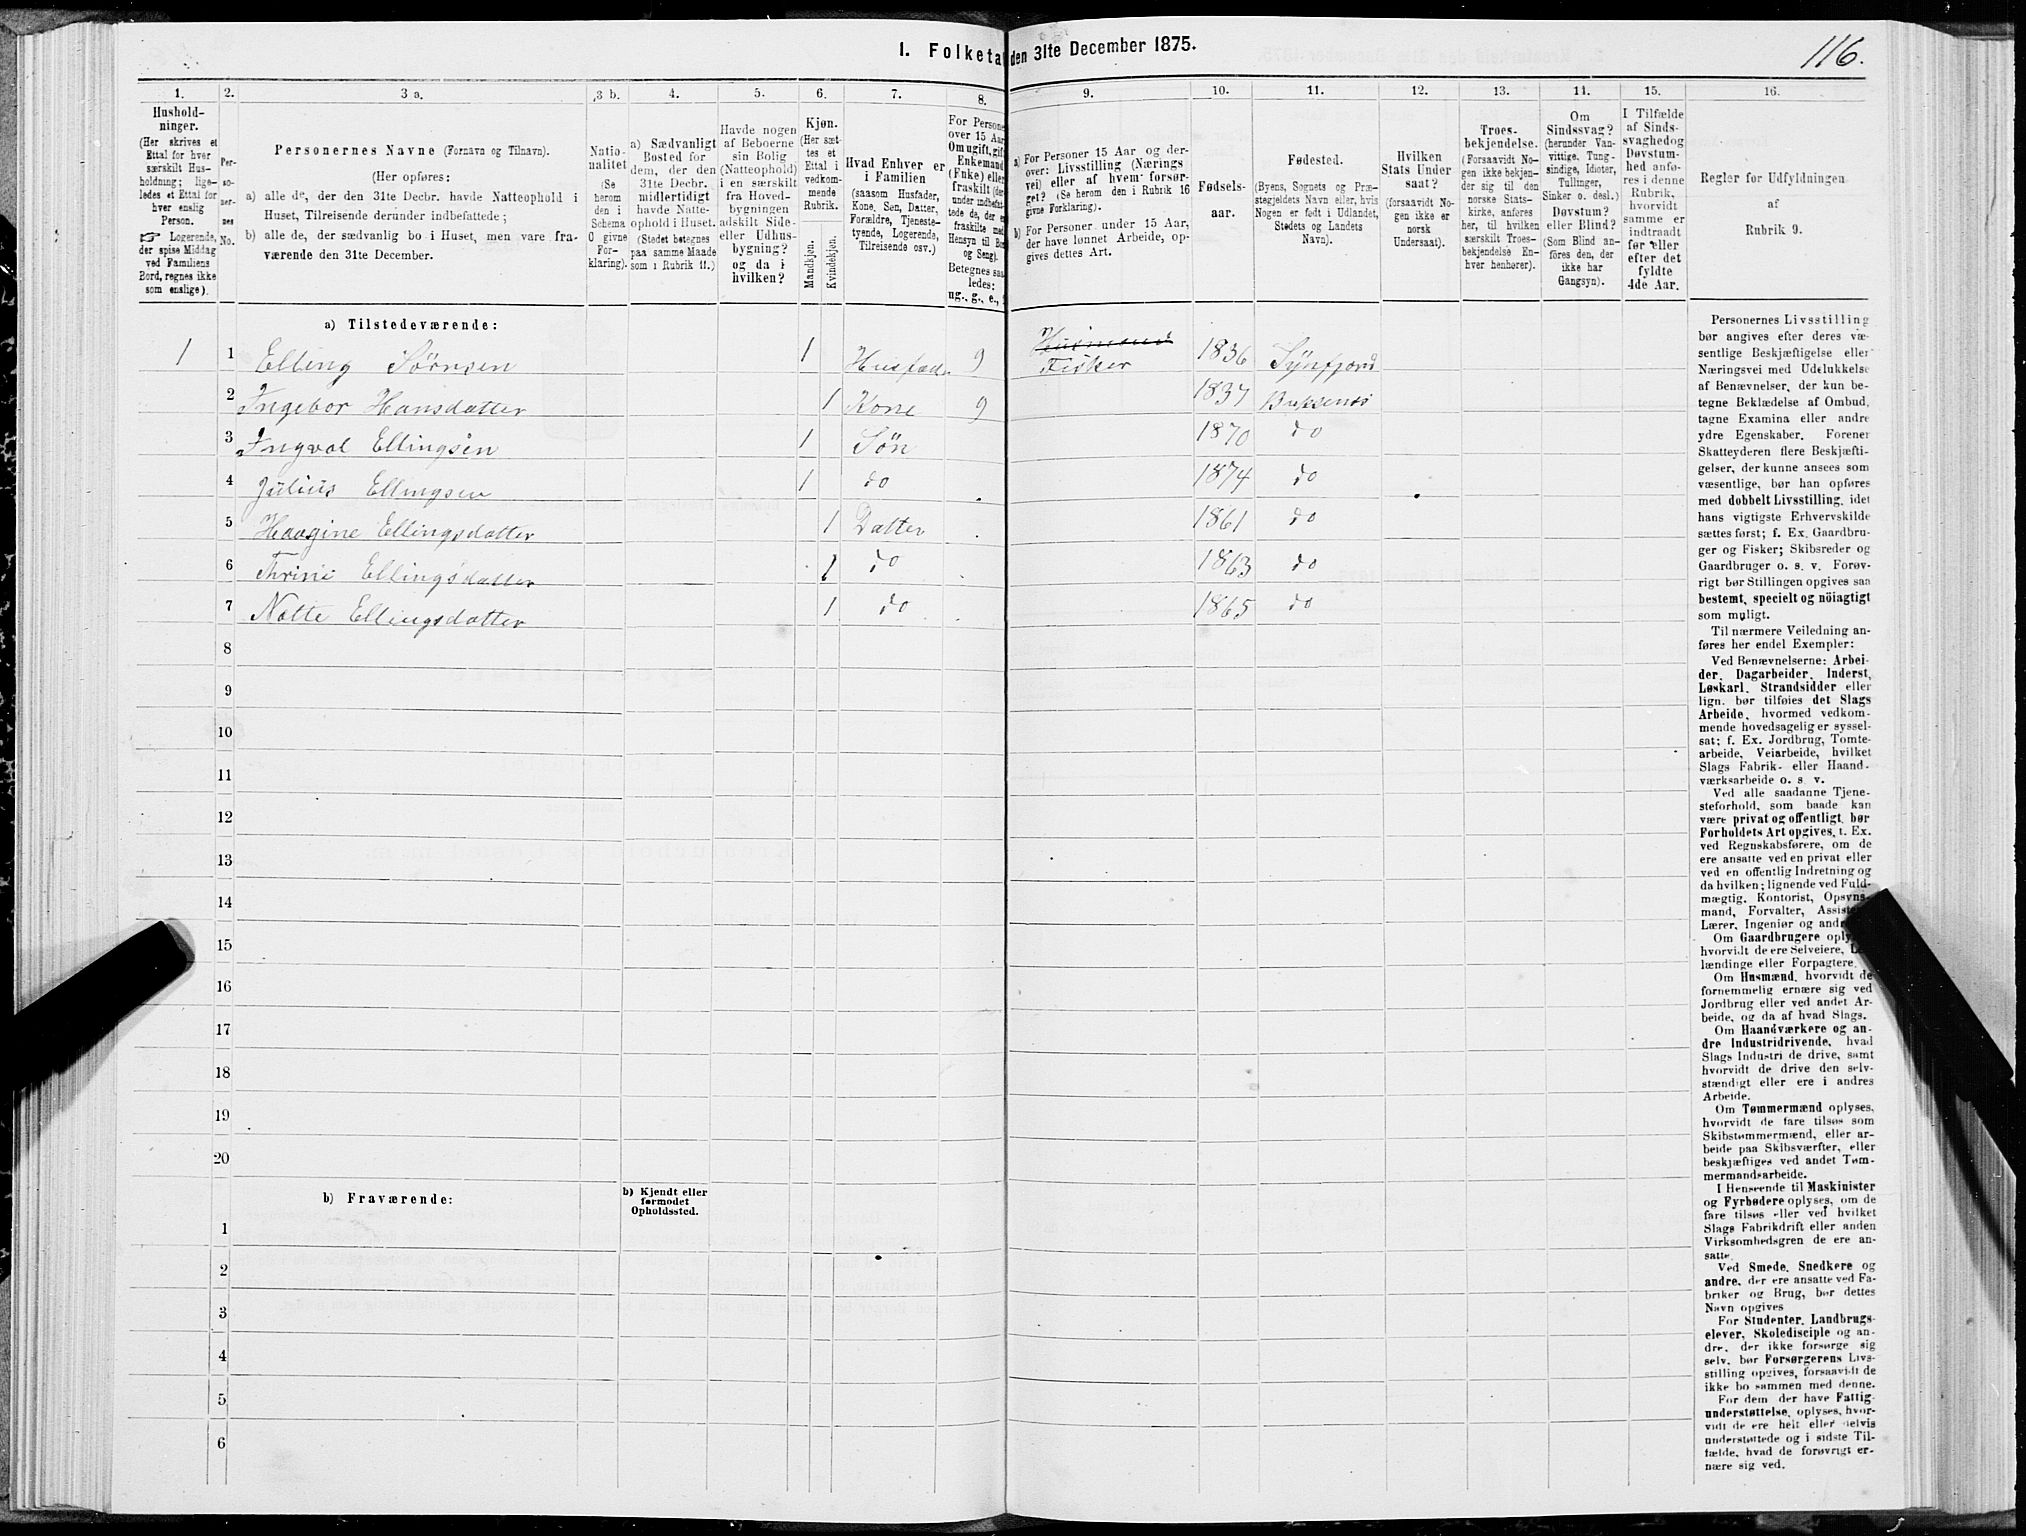 I. Folketa den 31te December 1875.
116.
1.
Hushold-
ninger.
(Her skrives et
Ettal for hver
særskilt Hus-
holdning; lige-
ledes et Ettal for
hver enslig
Person.
☞ Logerende,
der spise Middag
ved Familiens
Bord, regnes ikke
som enslige).
2.
Per-
so-
ner-
nes
No.
3 a.
Personernes Navne (Fornavn og Tilnavn).
(Her opføres:
a) alle de, der den 31te Decbr. havde Natteophold i
Huset, Tilreisende derunder indbefattede;
b) alle de, der sædvanlig bo i Huset, men vare fra-
værende den 31te December.
3 b.
Natio-
nalitet
(Se
herom
den i
Schema
O givne
For-
klaring).
4.
a) Sædvanligt
Bosted for
dem, der den
31te Decbr.
midlertidigt
havde Natte-
ophold i Huset.
(Stedet betegnes
paa samme Maade
som i Rubrik 11.)
5.
Havde nogen
af Beboerne
sin Bolig
(Natteophold)
i en særskilt
fra Hoved-
bygningen
adskilt Side-
eller Udhus-
bygning?
og da i
hvilken?
6.
Kjøn.
(Her sæt-
tes et
Ettal i
vedkom-
mende
Rubrik.
Mandkjøn.
Kvindekjøn.
7.
Hvad Enhver er
i Familien
(saasom Husfader,
Kone, Søn, Datter,
Forældre, Tjeneste-
tyende, Logerende,
Tilreisende osv.)
8.
For Persone
over 15 Aar
Om ugift, gift
Enkemand
(Enke) eller
fraskilt (der-
under indbefat-
tede de, der er
fraskilte med
Hensyn til Bo
og Seng).
Betegnes saa
ledes:
ug., g., e.,
9.
a) For Personer 15 Aar og der-
over: Livsstilling (Nærings
vei) eller af hvem forsør-
get? (Se herom den i Rubrik 16
givne Forklaring).
b) For Personer under 15 Aar,
der have lønnet Arbeide, op-
gives dettes Art.
10.
Fødsels-
aar.
11.
Fødested.
(Byens, Sognets og Præ-
stegjeldets Navn eller, hvis
Nogen er født i Udlandet,
Stedets og Landets
Navn).
12.
Hvilken
Stats Under
saat?
(forsaavidt No-
gen ikke er
norsk
Undersaat).
13.
Troes-
bekjendelse.
(Forsaavidt No-
gen ikke bekjen-
der sig til den
norske Stats-
kirke, anføres
her, til hvilken
særskilt Troes-
bekjendelse En-
hver henhører).
11.
Om
Sindssvag?
(herunder Van-
vittige, Tung-
sindige, Idioter,
Tullinger,
Sinker o. desl.)
Døvstum?
eller Blind?
(Som Blind an-
føres den, der
ikke har
Gangsyn).
15.
I Tilfælde
af Sinds-
svaghed og
Døvstum-
hed anfø-
res i denne
Rubrik,
hvorvidt
samme er
indtraadt
før eller
efter det
fyldte
4de Aar.
16.
Regler for Udfyldningen
af
Rubrik 9.
a) Tilstedeværende:
Husmand
1 1 Elling Sörnsen 1 Husfad. g Fisker 1836
2 Ingebor Hansdatter 1 Kone g 1837
3 Ingval Ellingsen 1 Søn 1870 do
4 Julius Ellingsen 1 do 1874 do
5 Haagine Ellingsdatter 1 Datter 1861 do
6 Thrine Ellingsdatter 1 do 1863 do
7 Natte Ellingsdatter 1 do 1865 do
8
9
10
11
12
13
14
15
16
17
18
19
20
b) Fraværende:
b) Kjendt eller
formodet
Opholdssted.
1
2
3
4
5
6
Personernes Livsstilling
bør angives efter deres væ-
sentlige Beskjæftigelse eller
Næringsvei med Udelukkelse
af Benævnelser, der kun be-
tegne Beklædelse af Ombud,
tagne Examina eller andre
ydre Egenskaber. Forener
Skatteyderen flere Beskjæfti-
gelser, der kunne ansees som
væsentlige, bør han opføres
med dobbelt Livsstilling, idet
hans vigtigste Erhvervskilde
sættes først; f. Ex. Gaardbru-
ger og Fisker; Skibsreder og
Gaardbruger o. s. v. Forøv-
rigt bør Stillingen opgives saa
bestemt, specielt og nöiagtigt
som muligt.
Til nærmere Veiledning an-
føres her endel Exempler:
Ved Benævnelserne: Arbei-
der, Dagarbeider, Inderst,
Løskarl, Strandsidder eller
lign. bør tilføies det Slags
Arbeide, hvormed vedkom-
mende hovedsagelig er syssel-
sat; f. Ex. Jordbrug, Tomte-
arbeide, Veiarbeide, hvilket
Slags Fabrik- eller Haand-
værksarbeide o. s. v.
Ved alle saadanne Tjene-
steforhold, som baade kan
være privat og offentligt, bør
Forholdets Art opgives, t. Ex.
ved Regnskabsførere, om de
ere ansatte ved en privat eller
ved en offentlig Indretning og
da hvilken; lignende ved Fuld-
mægtig, Kontorist, Opsyns-
mand, Forvalter, Assist
Lærer, Ingeniør og and
Om Gaardbrugere oply
hvorvidt de ere Selveiere, L
lændinge eller Forpagtere.
Om Husmænd, hvorvidt de
fornemmelig ernære sig ved
Jordbrug eller ved andet Ar-
beide, og da af hvad Slags.
Om Haandværkere og an-
dre Industridrivende, hvad
Slags Industri de drive, samt
hvorvidt de drive den selv-
stændigt eller ere i andres
Arbeide.
Om Tømmermænd oplyses,
hvorvidt de fare tilsøs som
Skibstømmermænd, eller ar-
beide paa Skibsværfter, eller
beskjæftiges ved andet Tøm-
mermandsarbeide.
I Henseende til Maskinister
og Fyrbødere oplyses, om de
fare tilsøs eller ved hvilket
Slags Fabrikdrift eller anden
Virksomhedsgren de ere an-
satte.
Ved Smede, Snedkere og
andre, der ere ansatte ved Fa-
briker og Brug, bør dettes
Navn opgives
For Studenter, Landbrugs-
elever, Skoledisciple og an-
dre, der ikke forsørge sig
selv, bør Forsørgerens Livs-
stilling opgives, forsaavidt de
ikke bo sammen med denne.
For dem der have Fattig-
understøttelse, oplyses, hvor-
vidt de ere helt eller delvis
understøttede og i sidste Til-
fælde, hvad de forøvrigt er-
nære sig ved.